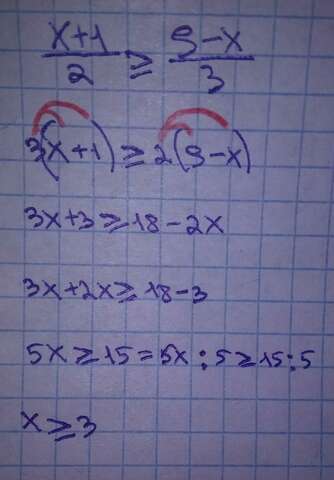 x+1/2 ≥ 9-x/3
3(x+1) ≥ 2(9-x)
3x+3 ≥ 18-2x
3x+2x ≥ 18-3
5x ≥ 15 = 5x : 5 ≥ 15 : 5
x ≥ 3